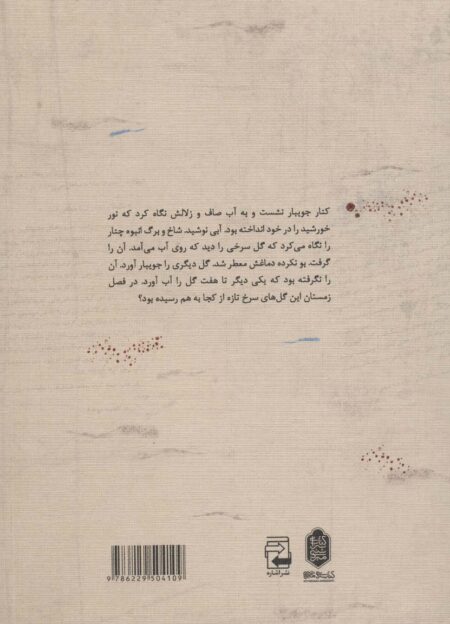 کنار جویبار نشست و به آب صاف و زلالش نگاه کرد که نور
خورشید را در خود انداخته بود. آبی نوشید. شاخ و برگ انبوه چنار
را نگاه می‌کرد که گل سرخی را دید که روی آب می‌آمد. آن را
گرفت. بو نکرده دماغش معطر شد. گل دیگری را جویبار آورد. آن
را نگرفته بود که یکی دیگر تا هفت گل را آب آورد. در فصل
زمستان این گل‌های سرخ تازه از کجا به هم رسیده بود؟
نشر اشاره
9 786229 504109